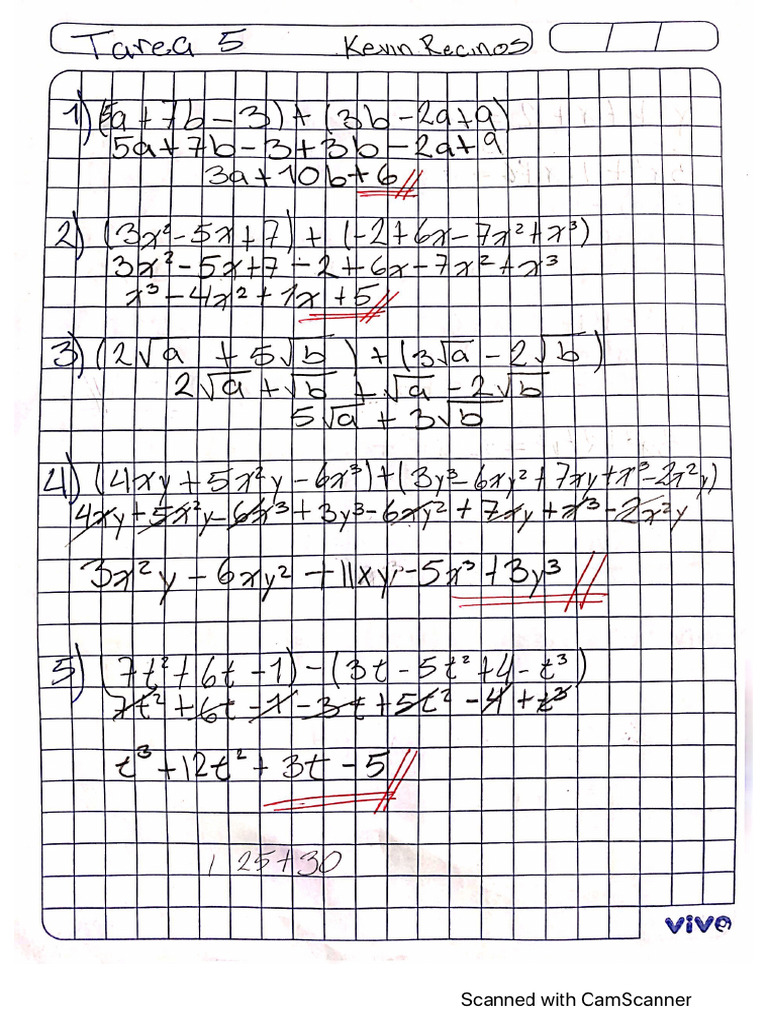 Tarea 5 Kevin Recinos
1) (5a + 7b - 3) + (3b - 2a + 9)
5a + 7b - 3 + 3b - 2a + 9
3a + 10b + 6
2) (3x² - 5x + 7) + (-2 + 6x - 7x² + x³)
3x² - 5x + 7 - 2 + 6x - 7x² + x³
x³ - 4x² + 1x + 5
3) (2√a + 5√b) + (3√a - 2√b)
2√a + √b + √a - 2√b
5√a + 3√b
4) (4xy + 5x²y - 6x³) + (3y³ - 6xy² + 7xy + x³ - 2x²y)
4xy + 5x²y - 6x³ + 3y³ - 6xy² + 7xy + x³ - 2x²y
3x²y - 6xy² + 11xy - 5x³ + 3y³
5) (7t² + 6t - 1) - (3t - 5t² + 4 - t³)
7t² + 6t - 1 - 3t + 5t² - 4 + t³
t³ + 12t² + 3t - 5
25+30
vivo
Scanned with CamScanner